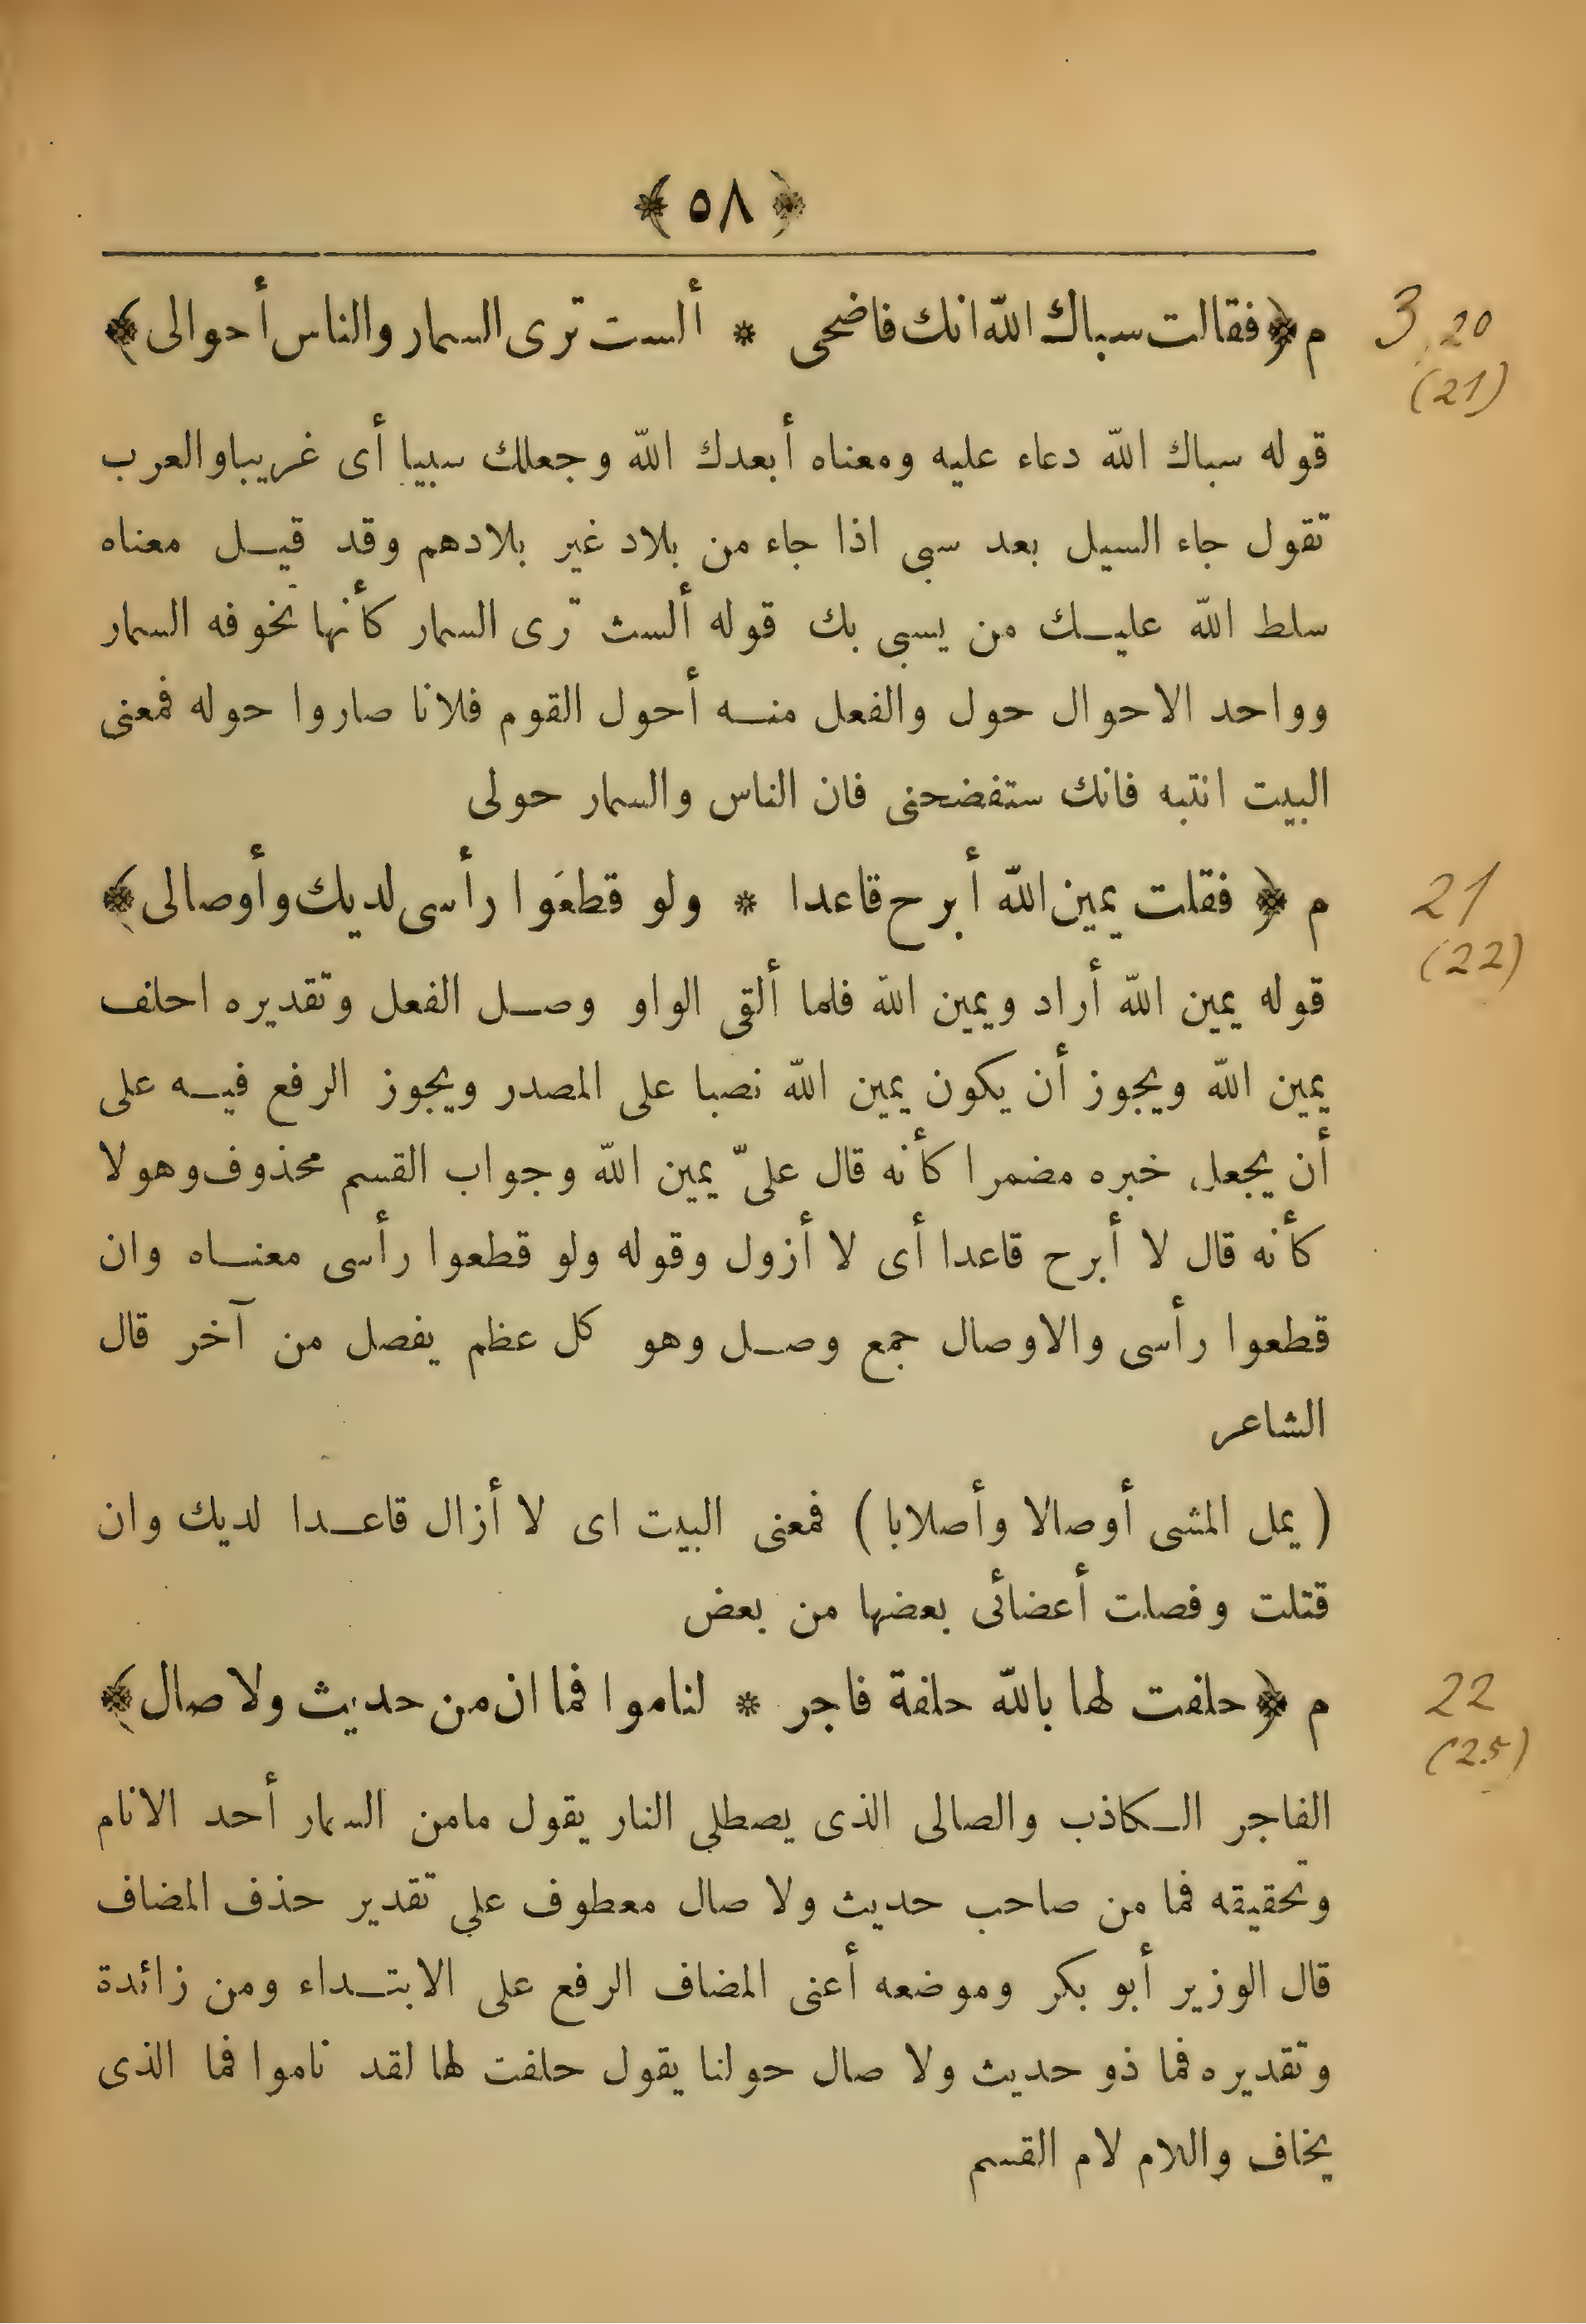 ﴿ ٥٨ ﴾
م ﴿ فقالت سباك الله انك فاضحى * ألست ترى السمار والناس أحوالى ﴾
3, 20
(21)
قوله سباك الله دعاء عليه ومعناه أبعدك الله وجعلك سبيا أى غريبا والعرب
تقول جاء السيل بعد سبى اذا جاء من بلاد غير بلادهم وقد قيل معناه
سلط الله عليك من يسبى بك قوله ألست ترى السمار كأنها تخوفه السمار
وواحد الاحوال حول والفعل منه أحول القوم فلانا صاروا حوله فمعنى
البيت انتبه فانك ستفضحنى فان الناس والسمار حولى
م ﴿ فقلت يمين الله أبرح قاعدا * ولو قطعوا رأسى لديك وأوصالى ﴾
21
(22)
قوله يمين الله أراد ويمين الله فلما ألقى الواو وصل الفعل وتقديره احلف
يمين الله ويجوز أن يكون يمين الله نصبا على المصدر ويجوز الرفع فيه على
أن يجعل خبره مضمرا كأنه قال علىّ يمين الله وجواب القسم محذوف وهو لا
كأنه قال لا أبرح قاعدا أى لا أزول وقوله ولو قطعوا رأسى معناه وان
قطعوا رأسى والاوصال جمع وصل وهو كل عظم يفصل من آخر قال
الشاعر
( يمل المشى أوصالا وأصلابا ) فمعنى البيت اى لا أزال قاعدا لديك وان
قتلت وفصلت أعضائى بعضها من بعض
م ﴿ حلفت لها بالله حلفة فاجر * لناموا فما ان من حديث ولا صال ﴾
22
(25)
الفاجر الكاذب والصالى الذى يصطلي النار يقول مامن السمار أحد الانام
وتحقيقه فما من صاحب حديث ولا صال معطوف علي تقدير حذف المضاف
قال الوزير أبو بكر وموضعه أعنى المضاف الرفع على الابتداء ومن زائدة
وتقديره فما ذو حديث ولا صال حولنا يقول حلفت لها لقد ناموا فما الذى
يخاف واللام لام القسم